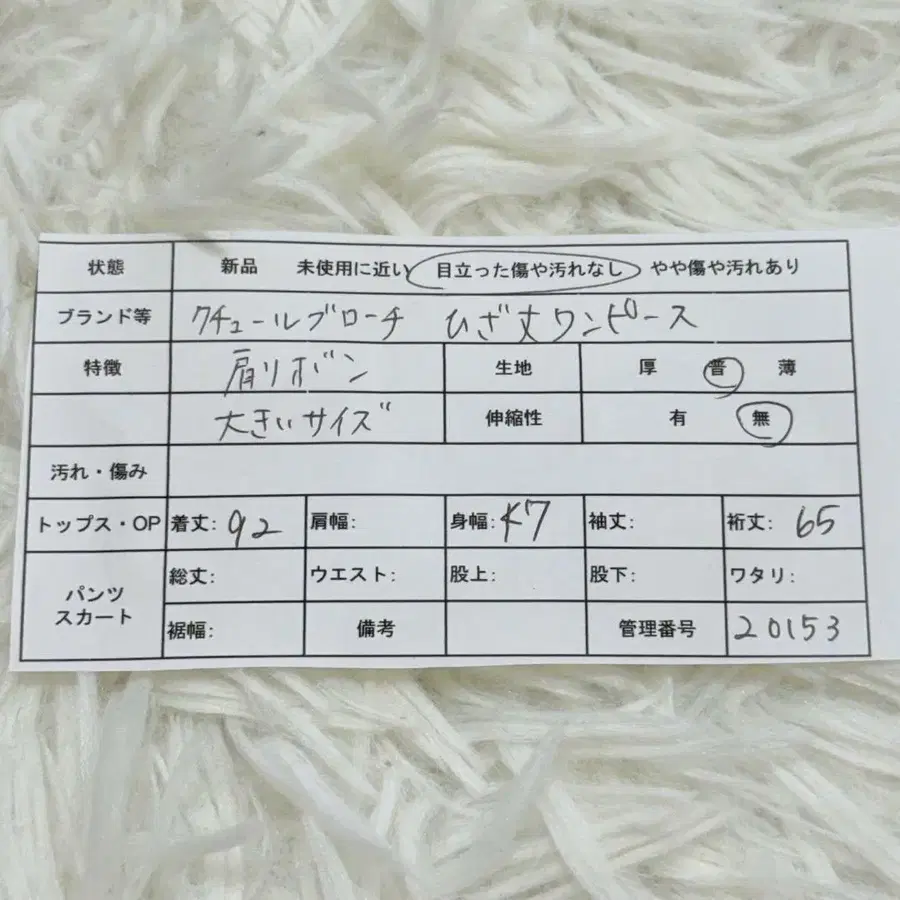 状態 新品 未使用に近い 目立った傷や汚れなし やや傷や汚れあり
ブランド等 クチュールブローチ ひざ丈ワンピース
特徴 肩リボン 生地 厚 普 薄
大きいサイズ 伸縮性 有 無
汚れ・傷み
トップス・OP 着丈: 92 肩幅: 身幅: 47 袖丈: 裄丈: 65
パンツ スカート
総丈: ウエスト: 股上: 股下: ワタリ:
裾幅: 備考 管理番号 20153